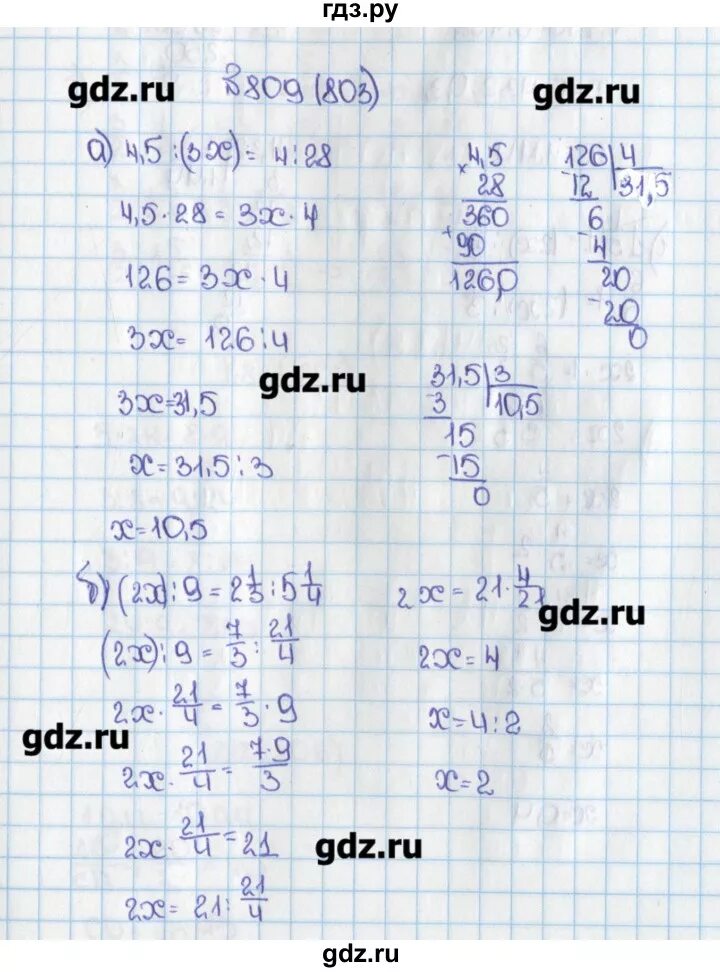 гдз.ру
gdz.ru
gdz.ru
№ 809 (803)
а) 4,5 : (3x) = 4 : 28
4,5 · 28 = 3x · 4
126 = 3x · 4
3x = 126 : 4
3x = 31,5
x = 31,5 : 3
x = 10,5
× 4,5
28
360
+ 90
126,0
126 | 4
- 12 | 31,5
6
- 4
20
- 20
0
gdz.ru
31,5 | 3
3 | 10,5
15
- 15
0
б) (2x) : 9 = 2 1/3 : 5 1/4
(2x) : 9 = 7/3 : 21/4
2x · 21/4 = 7/3 · 9
2x · 21/4 = 7·9/3
2x · 21/4 = 21
2x = 21 : 21/4
2x = 21 · 4/21
2x = 4
x = 4 : 2
x = 2
gdz.ru
gdz.ru
gdz.ru
gdz.ru